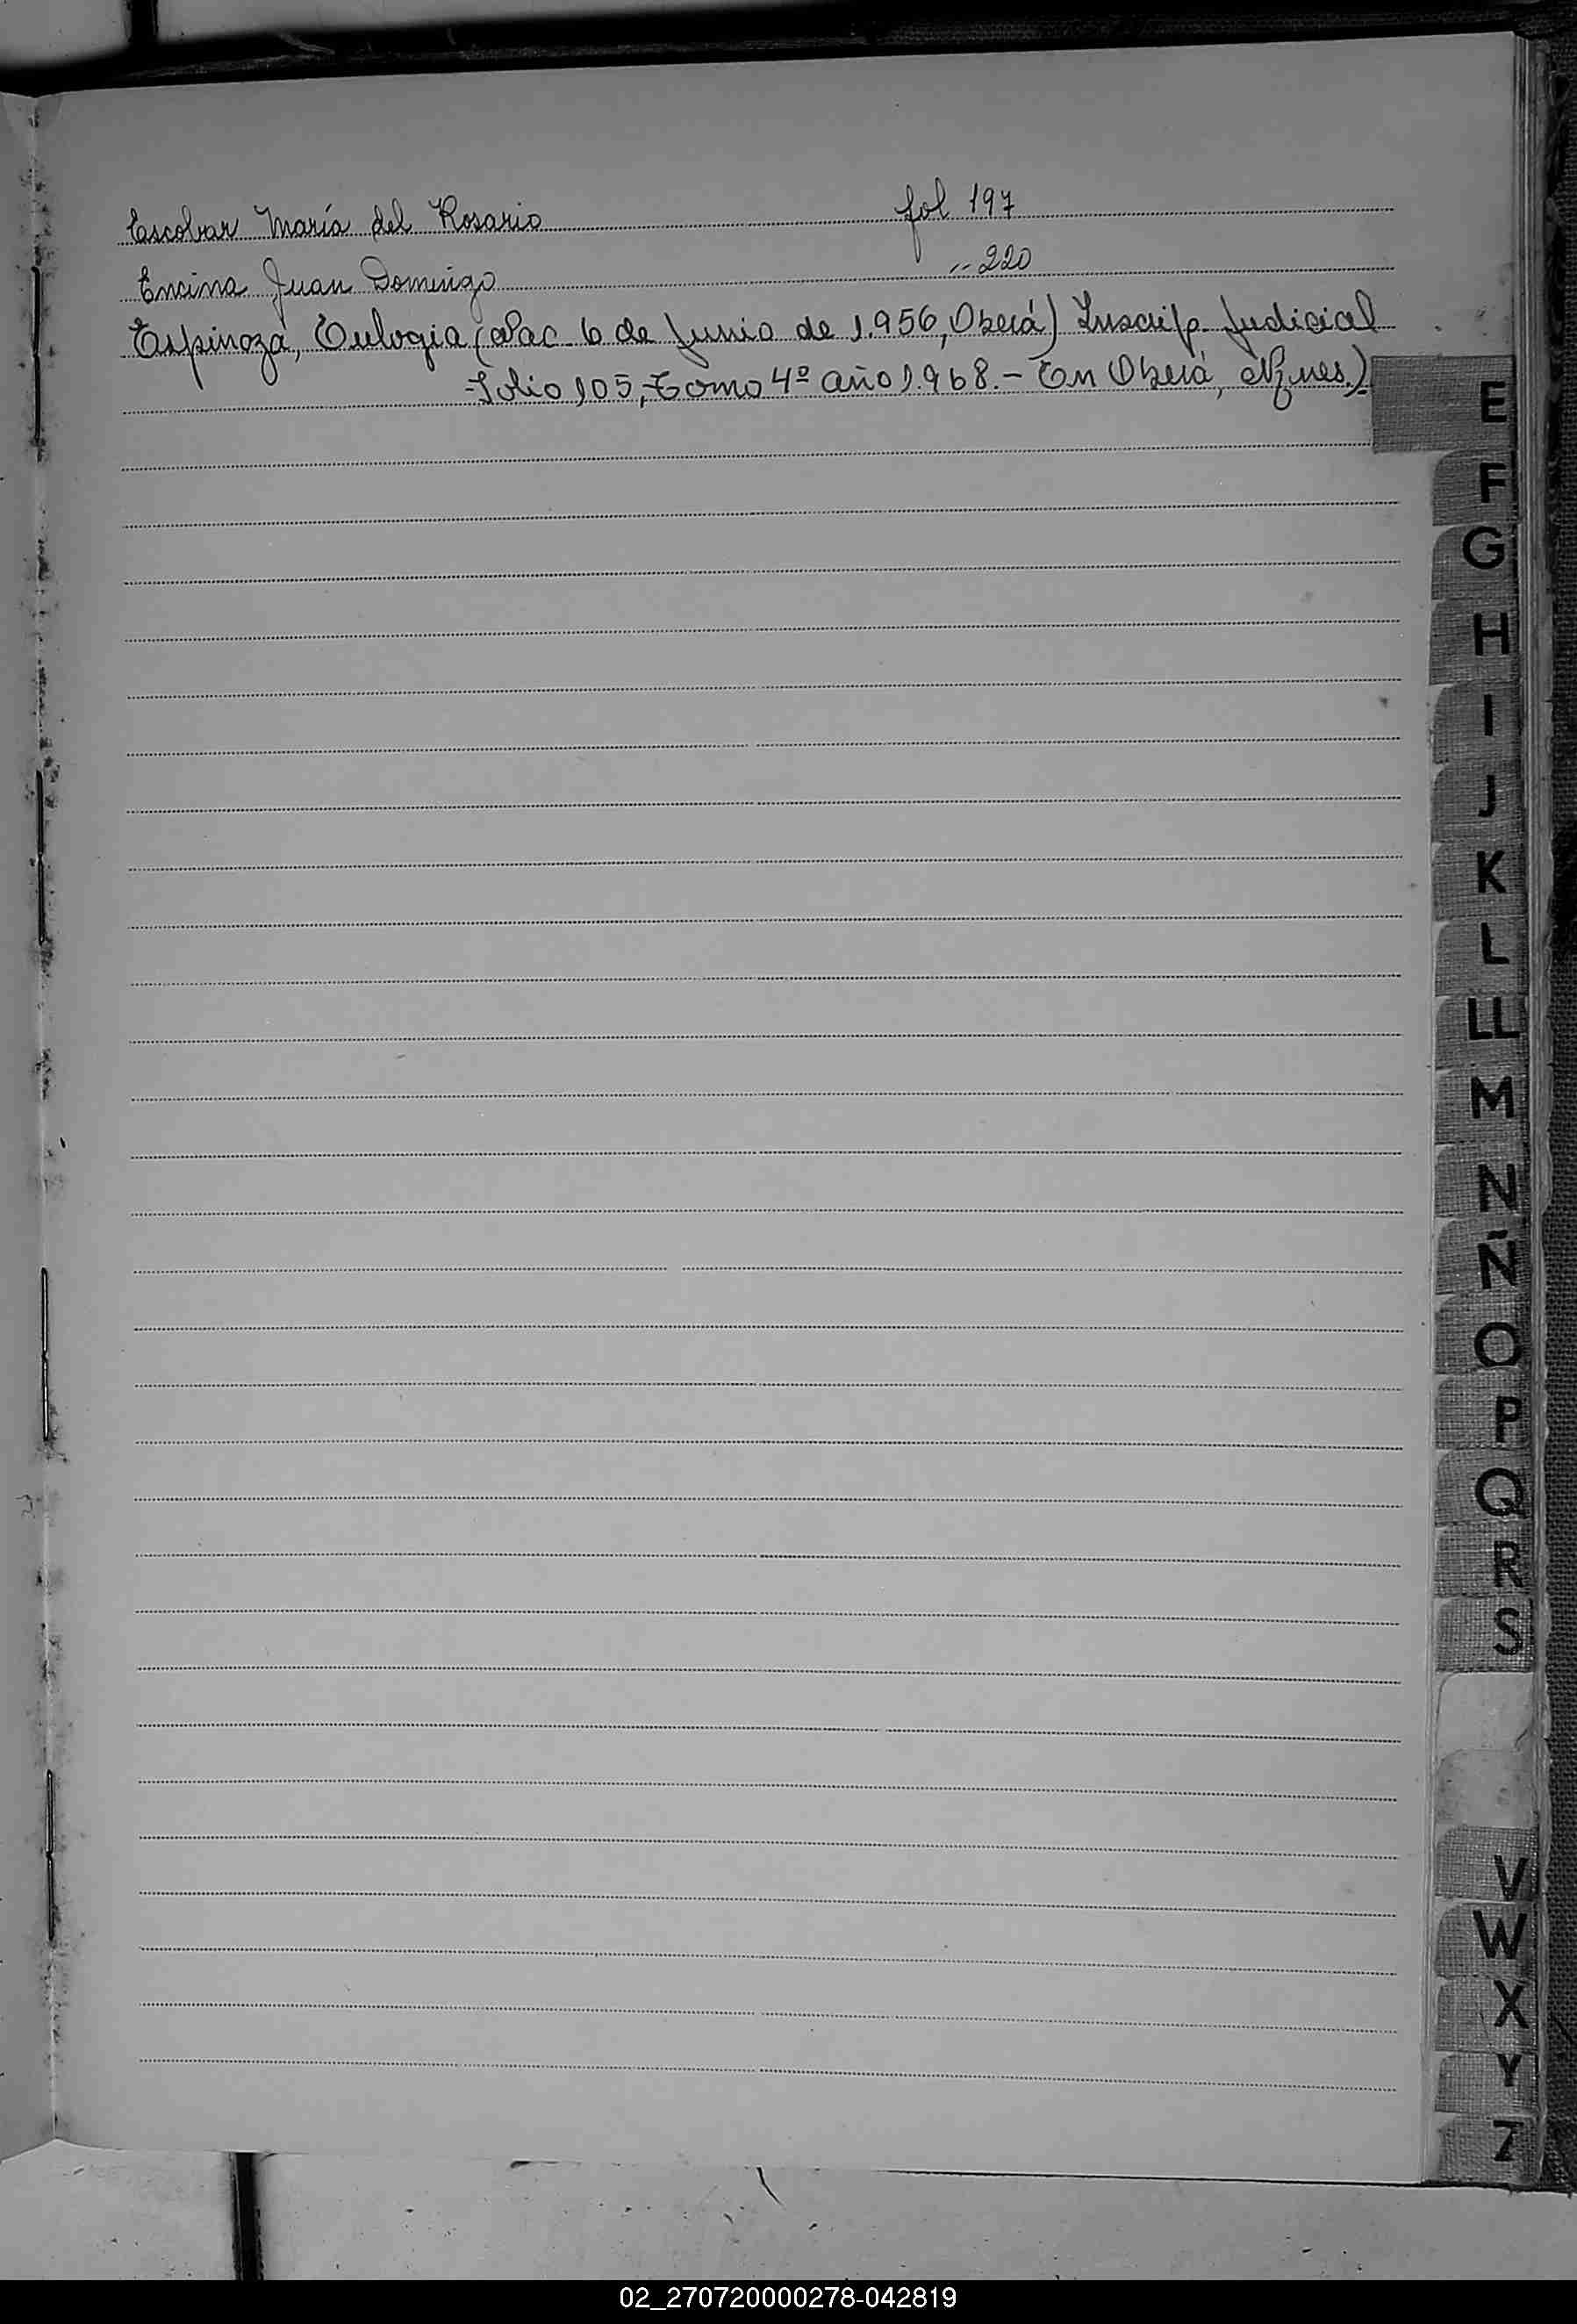 Escobar María del Rosario fol 197
Encina Juan Domingo " 220
Espinoza, Eulogia (Nac. 6 de Junio de 1.956, Oberá) Inscrip. Judicial
Folio 105, Tomo 4º año 1.968.- En Oberá, Mnes.)
E
F
G
H
I
J
K
L
LL
M
N
Ñ
O
P
Q
R
S
V
W
X
Y
Z
02_270720000278-042819